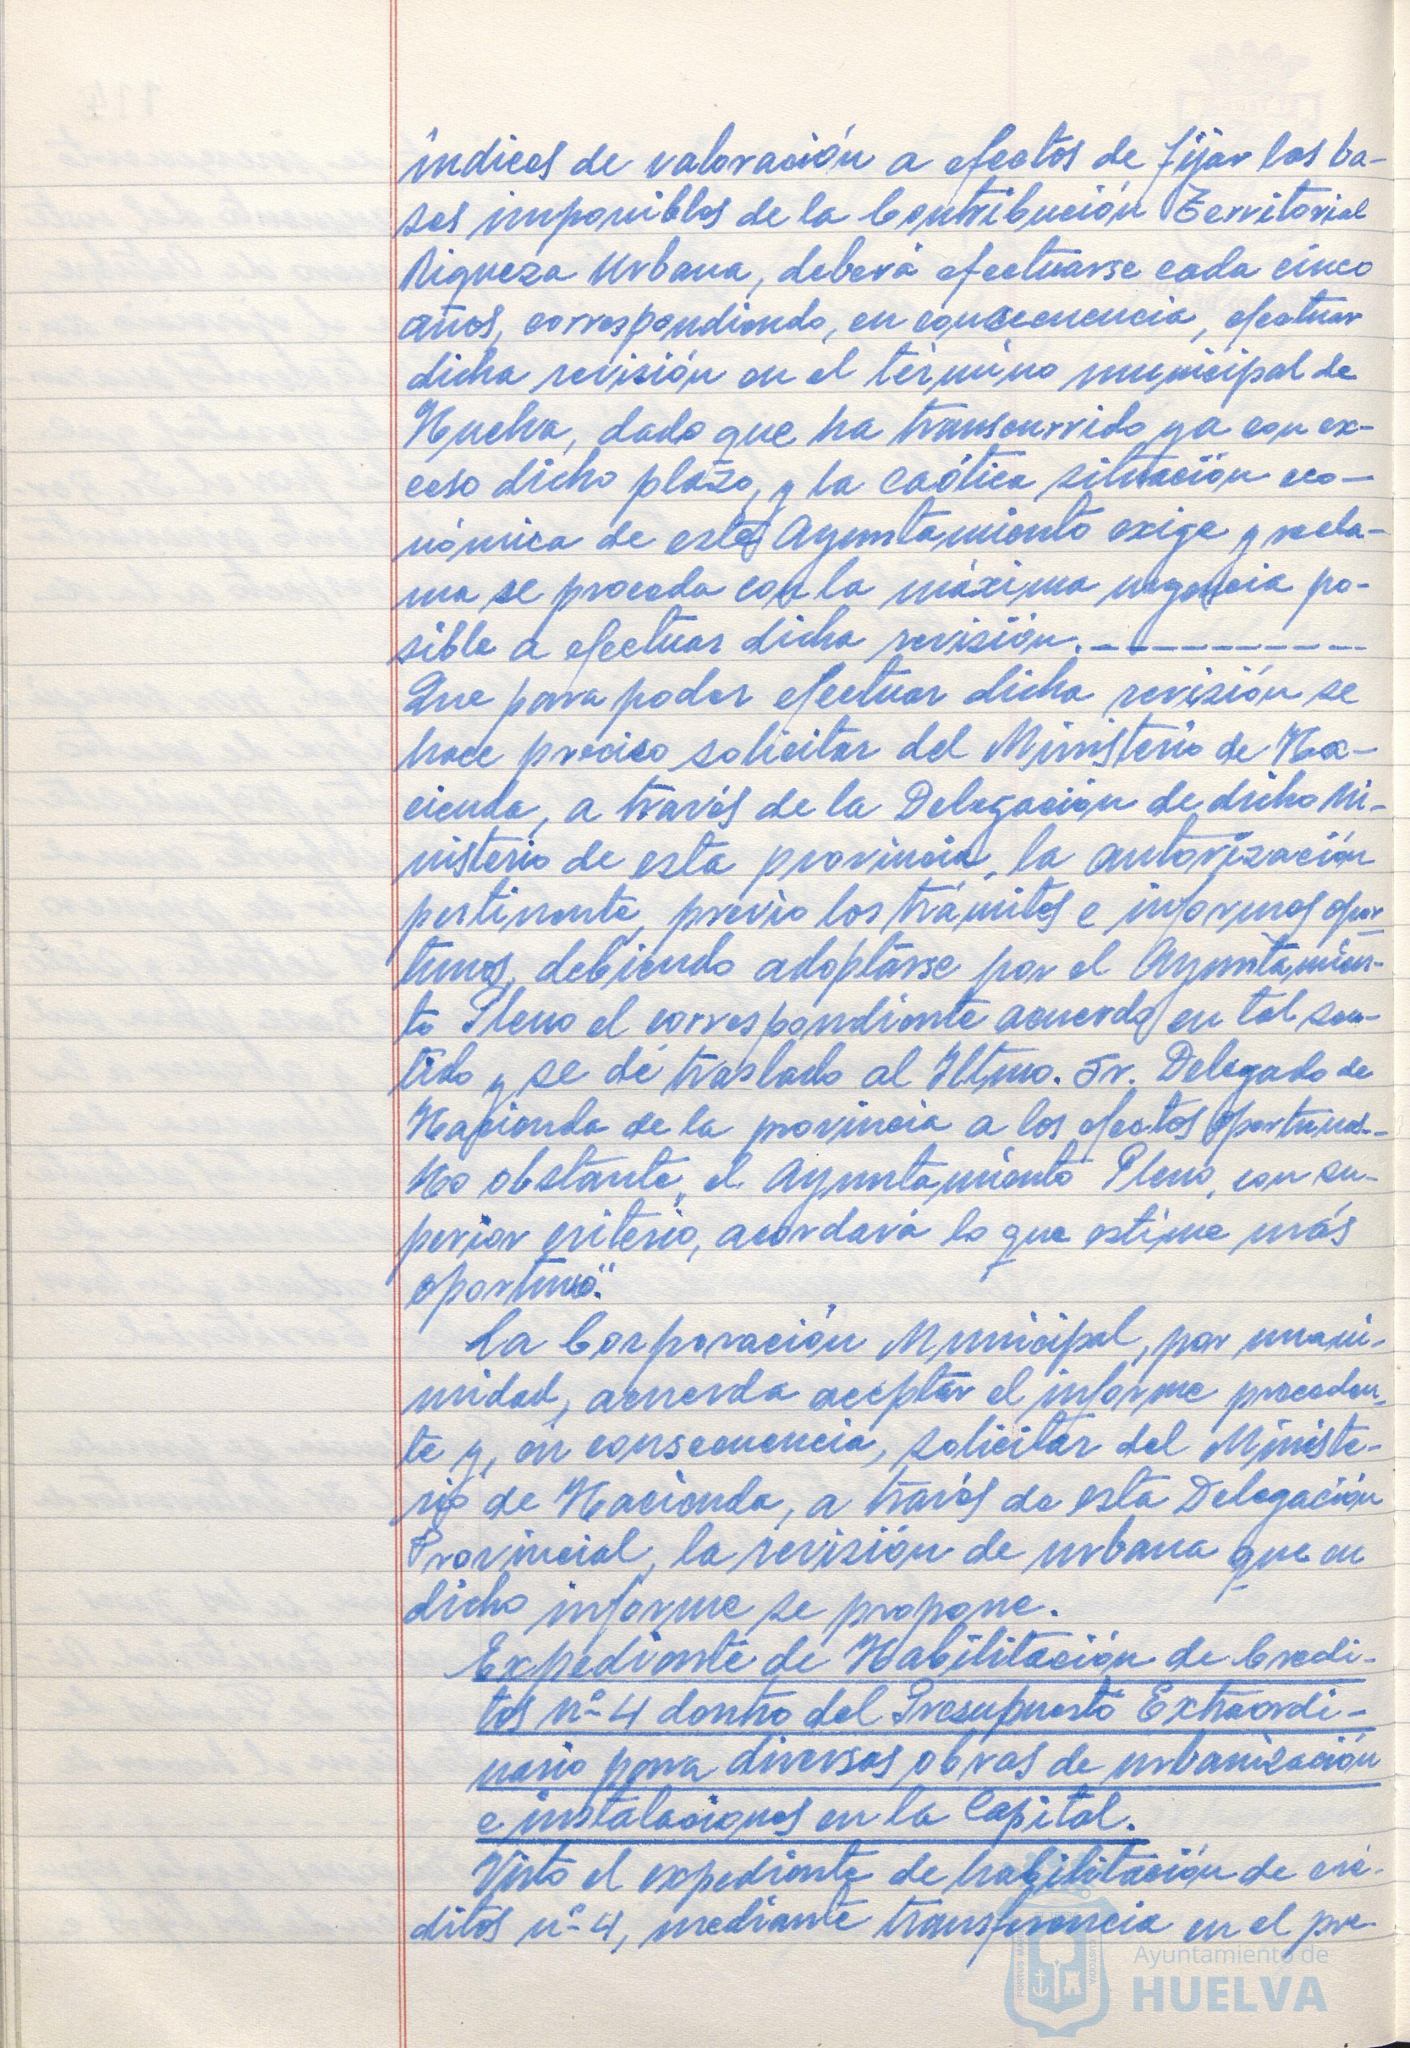 índices de valoración a efectos de fijar las ba-
ses imponibles de la Contribución Territorial
Riqueza Urbana, deberá efectuarse cada cinco
años, correspondiendo, en consecuencia, efectuar
dicha revisión en el término municipal de
Huelva, dado que ha transcurrido ya con ex-
ceso dicho plazo, y la caótica situación eco-
nómica de este Ayuntamiento exige y recla-
ma se proceda con la máxima urgencia po-
sible a efectuar dicha revisión.----------
Que para poder efectuar dicha revisión se
hace preciso solicitar del Ministerio de Ha-
cienda, a través de la Delegación de dicho Mi-
nisterio de esta provincia, la autorización
pertinente, previo los trámites e informes opor
tunos, debiendo adoptarse por el Ayuntamien-
to Pleno el correspondiente acuerdo en tal sen-
tido y se dé traslado al Iltmo. Sr. Delegado de
Hacienda de la provincia a los efectos oportunos.-
No obstante, el Ayuntamiento Pleno, con su-
perior criterio, acordará lo que estime más
oportuno".
La Corporación Municipal, por unani-
midad, acuerda aceptar el informe preceden-
te y, en consecuencia, solicitar del Ministe-
rio de Hacienda, a través de esta Delegación
Provincial, la revisión de urbana que en
dicho informe se propone.
Expediente de Habilitación de Crédi-
tos nº 4 dentro del Presupuesto Extraordi-
nario para diversas obras de urbanización
e instalaciones en la Capital.
Visto el expediente de habilitación de cré-
ditos nº 4, mediante transferencia en el pre-
Ayuntamiento de
HUELVA